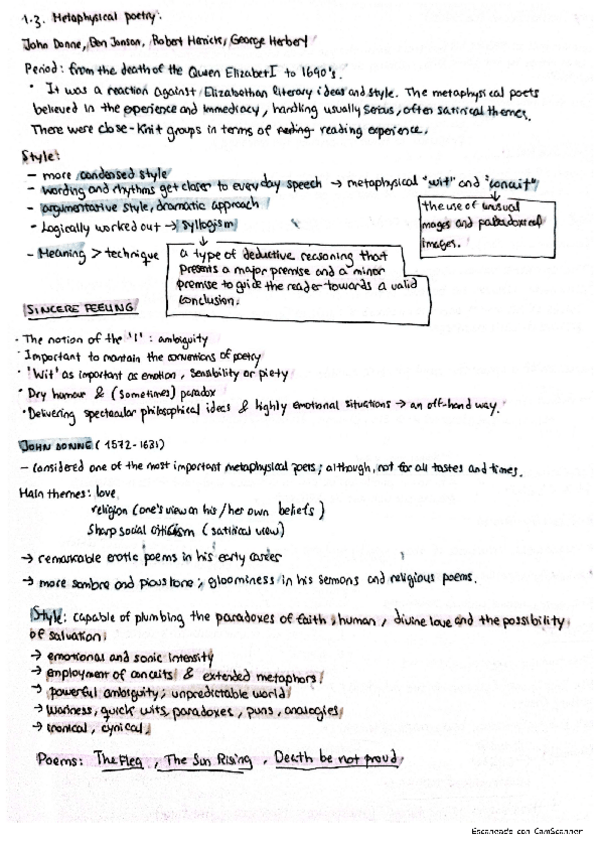 1.3. Metaphysical poetry.
John Donne, Ben Jonson, Robert Herrick, George Herbert
Period: from the death of the Queen Elizabet I to 1690's.
· It was a reaction against Elizabethan literary ideas and style. The metaphysical poets
believed in the experience and immediacy, handling usually serious, often satirical themes.
There were close-knit groups in terms of reading experience.
Style:
- more condensed style
- wording and rhythms get closer to everyday speech → metaphysical "wit" and "conceit"
- argumentative style, dramatic approach
the use of unusual
images and paradoxical
images.
- Logically worked out → syllogism
- Meaning > technique
a type of deductive reasoning that
presents a major premise and a minor
premise to guide the reader towards a valid
conclusion.
SINCERE FEELING
· The notion of the 'I': ambiguity
· Important to mantain the conventions of poetry
· 'Wit' as important as emotion, sensibility or piety
· Dry humour & (sometimes) paradox
· Delivering spectacular philosophical ideas & highly emotional situations → an off-hand way.
JOHN DONNE (1572-1631)
- Considered one of the most important metaphysical poets; although, not for all tastes and times.
Main themes: love
religion (one's view on his/her own beliefs)
sharp social criticism (satirical view)
→ remarkable erotic poems in his early career
→ more sombre and pious tone; gloominess in his sermons and religious poems.
Style: capable of plumbing the paradoxes of faith, human, divine love and the possibility
of salvation.
→ emotional and sonic intensity
→ employment of conceits & extended metaphors
→ powerful ambiguity; unpredictable world
→ wariness, quick wits, paradoxes, puns, analogies
→ ironical, cynical.
Poems: The Flea, The Sun Rising, Death be not proud,
Escaneado con CamScanner